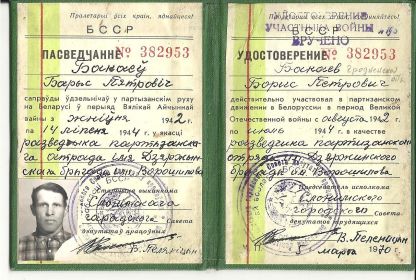 Пралетарыі ўсіх краін, яднайцеся!
БССР
ПАСВЕДЧАННЕ № 382953
Барыс Пятровіч
сапраўды ўдзельнічаў у партызанскім руху
на Беларусі ў перыяд Вялікай Айчыннай
вайны з жніўня 1942
па 14 ліпеня 1944 г. у якасці
разведчыка партызанска-
га отрада імя Дзержын-
скага брыгады імя Варашилова
Старшыня выканкома
Слонімскага
гарадскога Савета
дэпутатаў працоўных
В. Пеляніцын
УДОСТОВЕРЕНИЕ
УЧАСТНИКА ВОЙНЫ
ВРУЧЕНО
УДОСТОВЕРЕНИЕ № 382953
Борис Петрович
действительно участвовал в партизанском
движении в Белоруссии в период Великой
Отечественной войны с августа 1942
по июль 1944 в качестве
разведчика партизанского
отряда им. Дзержинского
бригады им. Ворошилова
Председатель исполкома
Слонимского
городского совета
депутатов трудящихся
В. Пеленицын
5 марта 1970 г.